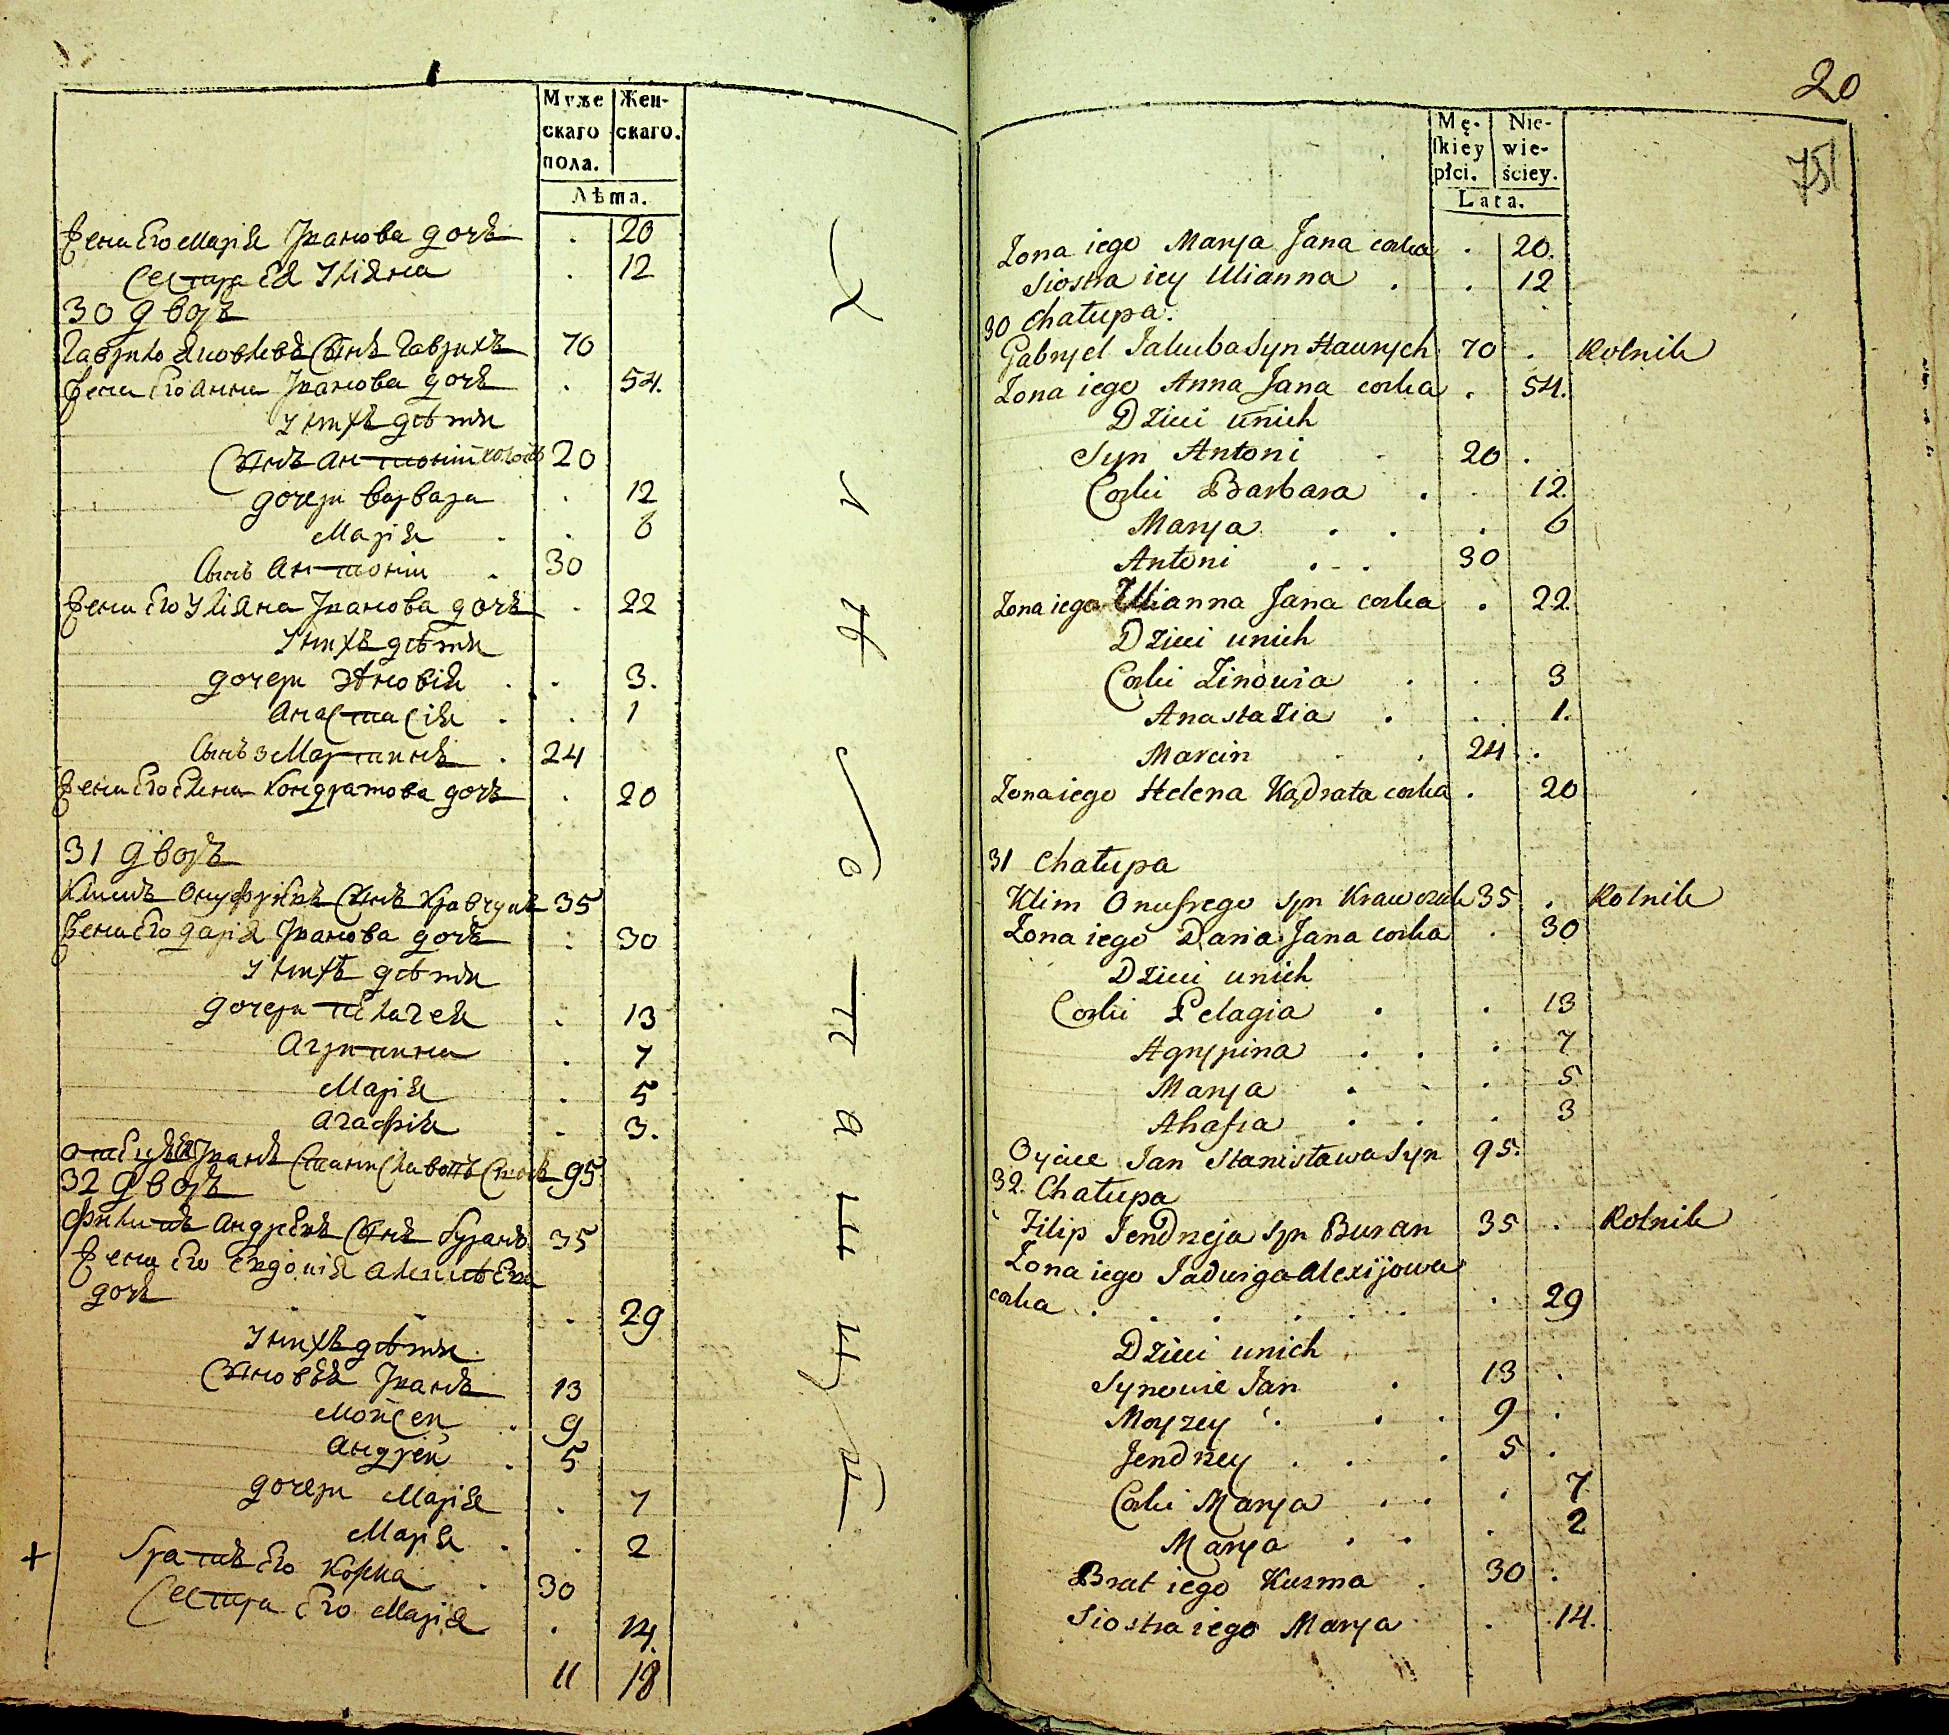 Муже
скаго
пола.
Жен-
скаго.
Лѣта.
Жена Его Марія Иванова дочь . 20
Сестра Ея Уліяна . 12
30 дворъ
Гаврило Яковлевъ Сынъ Гаврихъ 70
Жена Его Анна Иванова дочь . 54.
У нихъ дѣти
Сынъ Антоній 20
дочери Варвара . 12
Марія . . 6
Сынъ Антоній . 30
Жена Его Уліяна Иванова дочь . 22
У нихъ дѣти
дочери Зѣновія . . 3.
Анастасія . . 1
Сынъ 3 Мартинъ . 24
Жена Его Елена Кондратова дочь . 20
31 дворъ
Климъ Онуфріевъ Сынъ Кравчукъ 35
Жена Его Дарія Иванова дочь . 30
У нихъ дѣти
дочери Пелагея . 13
Агрипина . 7
Марія . 5
Агафія . 3.
Отецъ Ея Иванъ Станиславовъ Сынъ 95
32 дворъ
Филипъ Андреевъ Сынъ Буранъ 35
Жена Его Евдокія Алексѣева
дочь . 29
У нихъ дѣти
Сыновья Иванъ 13
Моисей . 9
Андрей . 5
дочери Марія . 7
Марія . . 2
+ Братъ Его Козма . 30
Сестра Его Марія . 14.
11 18
20
75
Mę-
skiey
płci.
Nie-
wie-
ściey.
Lata.
Zona iego Marya Jana corka . 20.
Siostra iey Ulianna . . 12
30 Chałupa.
Gabryel Jakuba Syn Hawrych 70 . Rolnik
Zona iego Anna Jana corka . 54.
Dzieci u nich
Syn Antoni 20 .
Corki Barbara . . 12.
Marya . . . 6
Antoni . . . 30
Zona iego Ulianna Jana corka . 22.
Dzieci u nich
Corki Zinowia . . 3
Anastazia . . 1.
Marcin . 24 .
Zona iego Helena Kądrata corka . 20
31 Chałupa
Klim Onufrego Syn Krawczuk 35 . Rolnik
Zona iego Daria Jana corka . 30
Dzieci u nich
Corki Pelagia . . 13
Agrypina . . . 7
Marya . . . 5
Ahafia . . . 3
Oyciec Jan Stanisława Syn 95.
32. Chałupa
Filip Jendrzeja Syn Buran 35 . Rolnik
Zona iego Jadwiga Alexijowa
corka . . . . . . . 29
Dzieci u nich
Synowie Jan . 13 .
Moyzey . . . 9 .
Jendrzey . . . 5 .
Corki Marya . . . 7
Marya . . . 2
Brat iego Kuzma . 30 .
Siostra iego Marya . 14.